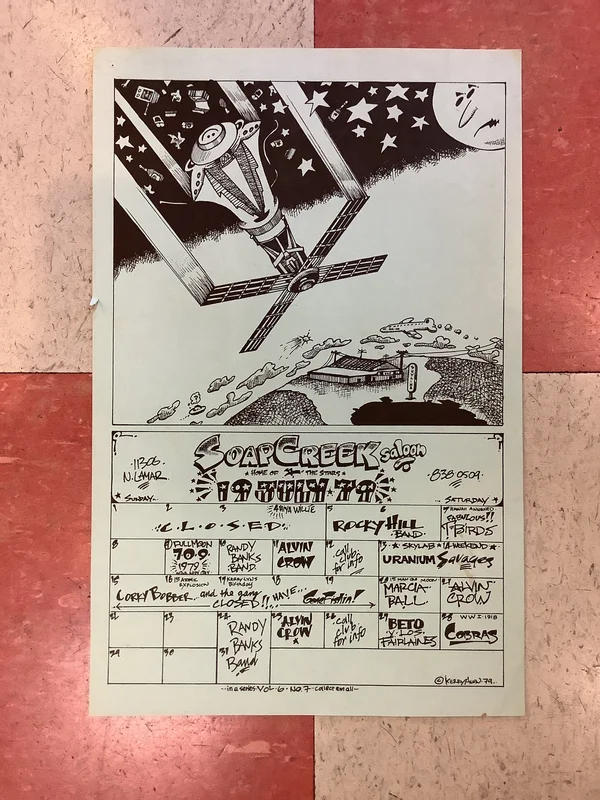 SOAP CREEK saloon
11306
N. LAMAR
• HOME OF THE STARS •
838-0509
19 JULY 79
SUNDAY
SATURDAY
1 2 3 4 5 6 7
WILLIE
C.L.O.S.E.D.
ROCKY HILL
BAND
FABULOUS!!
T-BIRDS
8 10 11 12 13 14
FULLMOON
709
1979
RANDY
BANKS
BAND
ALVIN
CROW
call
club
for info
SKYLAB WEEKEND
URANIUM Savages
15 16 17 18 19 21
1ST ATOMIC
EXPLOSION
KERRY LYN'S
Birthday
CORKY BOBBER... and the gang
HAVE...
Gone Fishin!
CLOSED!!
1ST MAN ON MOON
MARCIA
BALL
ALVIN
CROW
23 27 28
RANDY
BANKS
Band
ALVIN
CROW
call
club
for info
BETO
Y LOS
FAIRLANES
WWI-1918
COBRAS
29 30 31
© KERRY AWN 79
--in a series VOL 6 • NO. 7 - collect em all--